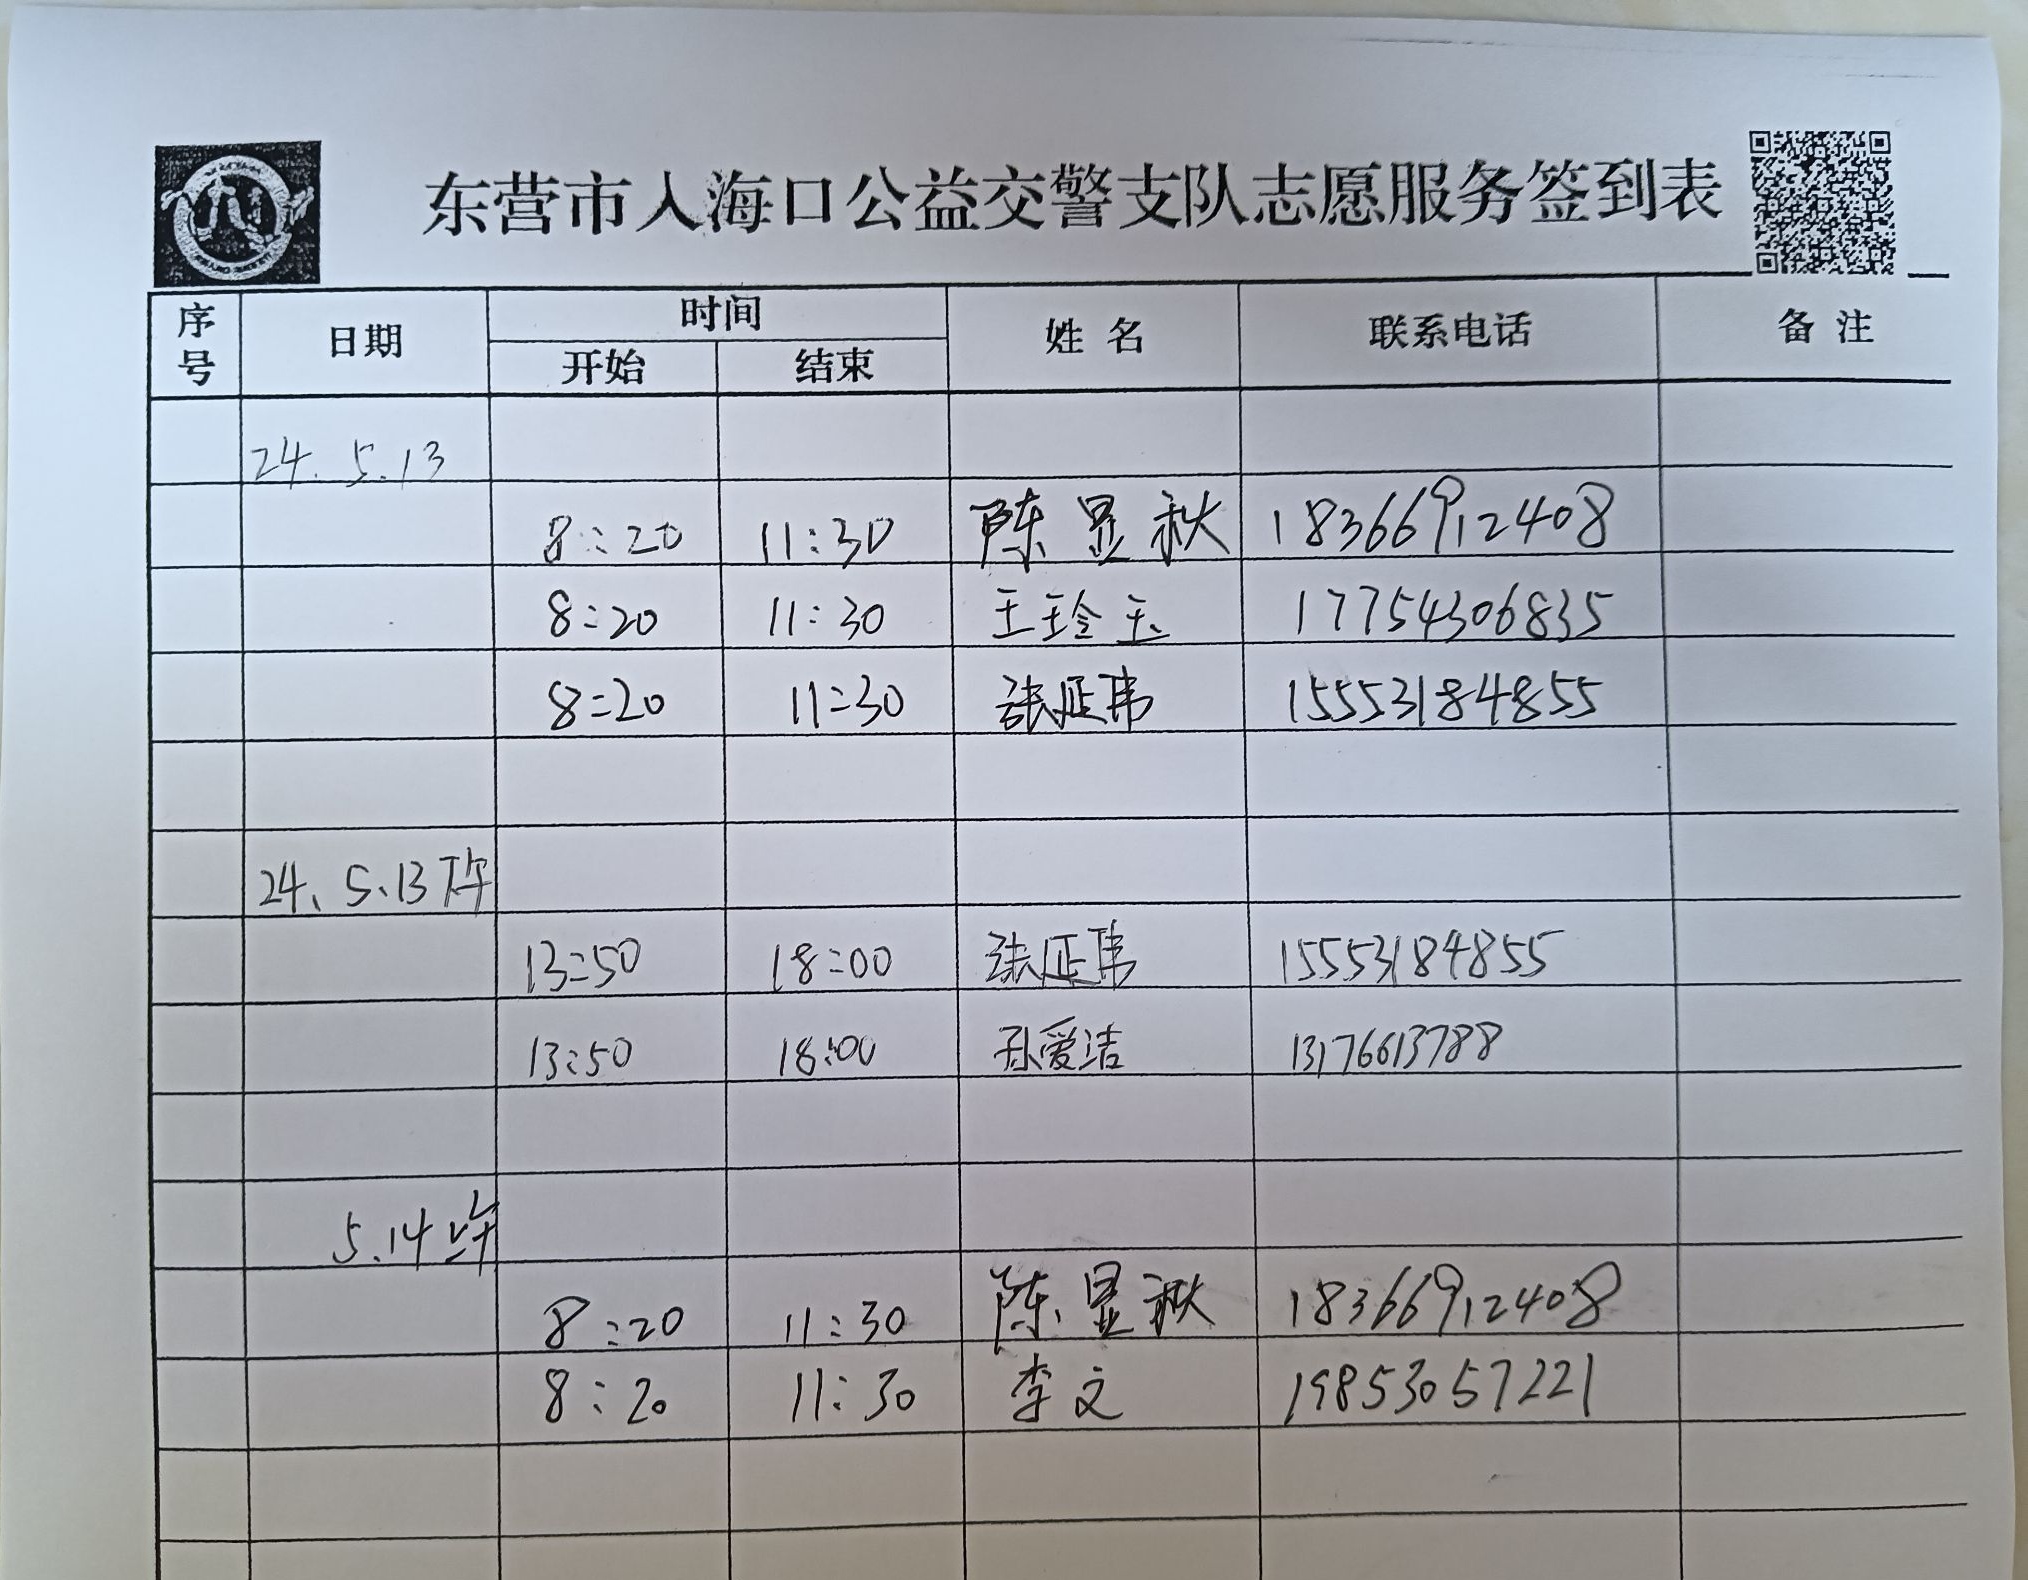 东营市入海口公益交警支队志愿服务签到表
序号 日期 时间 姓名 联系电话 备注
开始 结束
24.5.13
8:20 11:30 陈显秋 18366912408
8:20 11:30 王玲玉 17754306835
8:20 11:30 张延伟 15553184855
24、5、13下午
13:50 18:00 张延伟 15553184855
13:50 18:00 孙爱洁 13176613788
5.14上午
8:20 11:30 陈显秋 18366912408
8:20 11:30 李文 19853057221